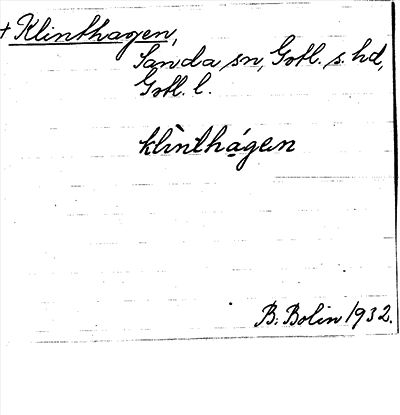 + Klinthagen,
Sanda sn, Gotl. s. hd,
Gotl. l.
klìnthágen
B. Bolin 1932.